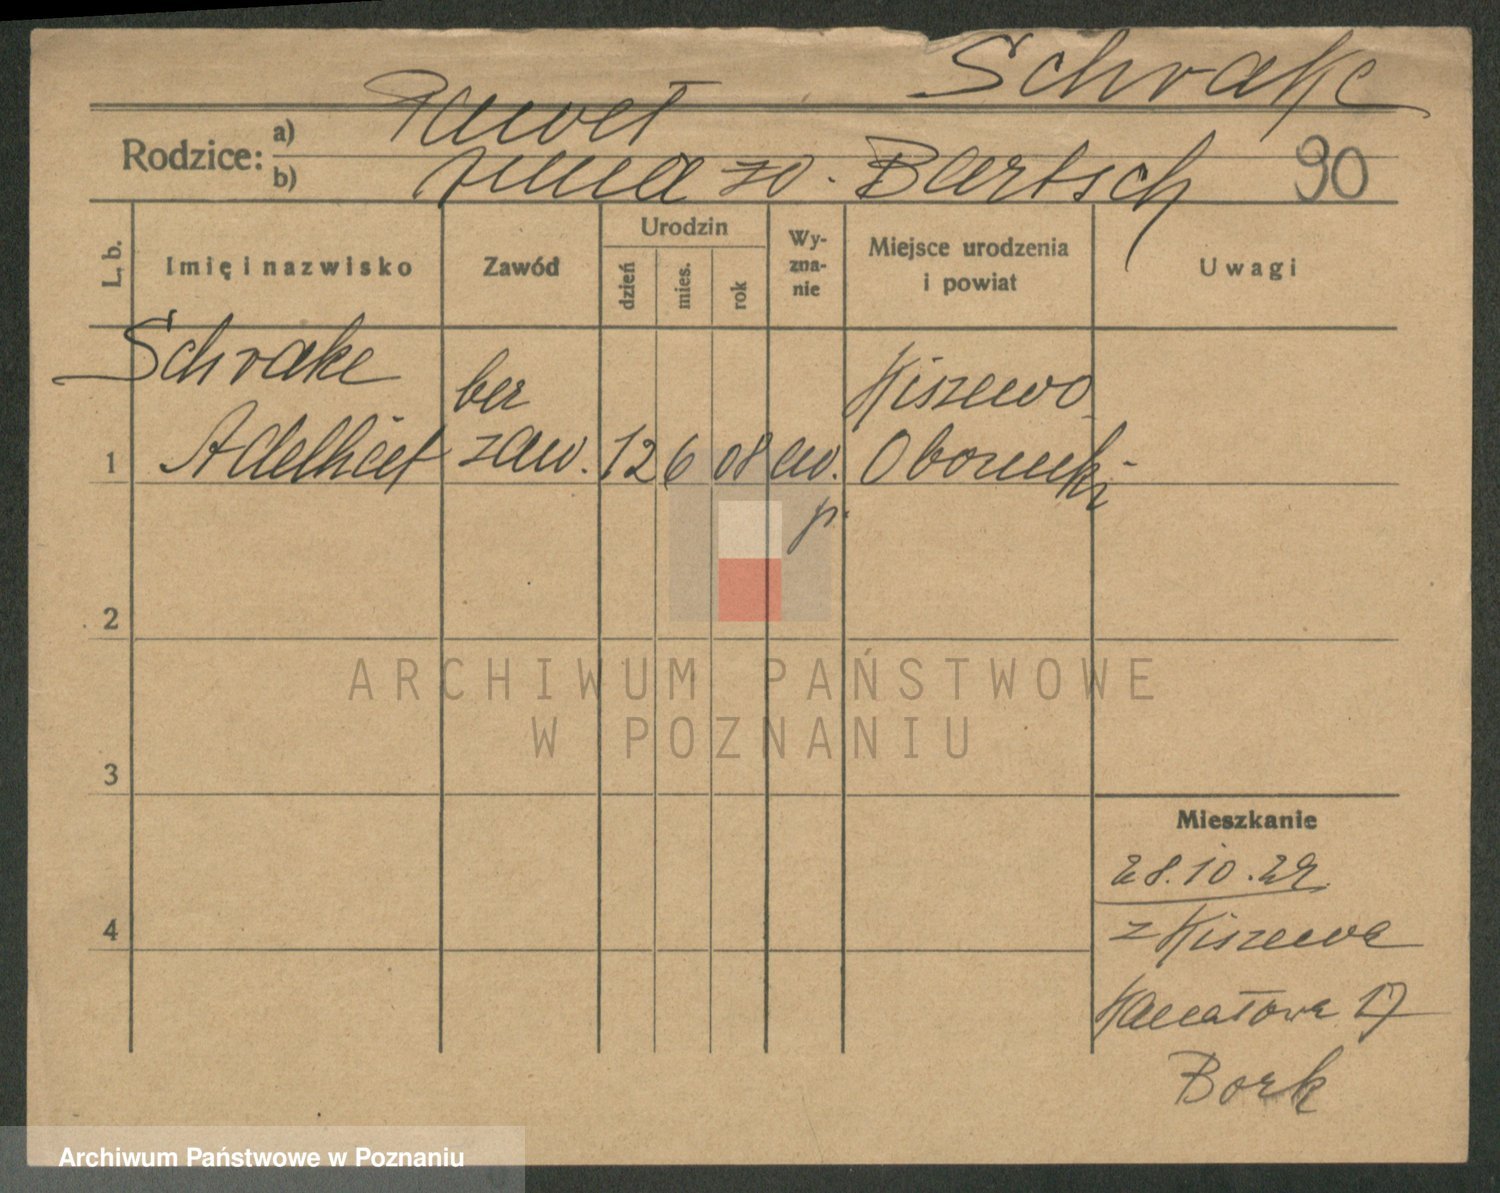 Schrake
Rodzice: a) Paweł
b) Anna zd. Bartsch 90
L. b. Imię i nazwisko Zawód Urodzin dzień mies. rok Wyznanie Miejsce urodzenia i powiat Uwagi
Schrake ber Kiszewo
1 Adelheit zaw. 12 6 08 ew. Obornicki
p.
2
ARCHIWUM PAŃSTWOWE
W POZNANIU
3
Mieszkanie
28.10.29
4 z Kiszewa
Kanałowa 17
Bork
Archiwum Państwowe w Poznaniu